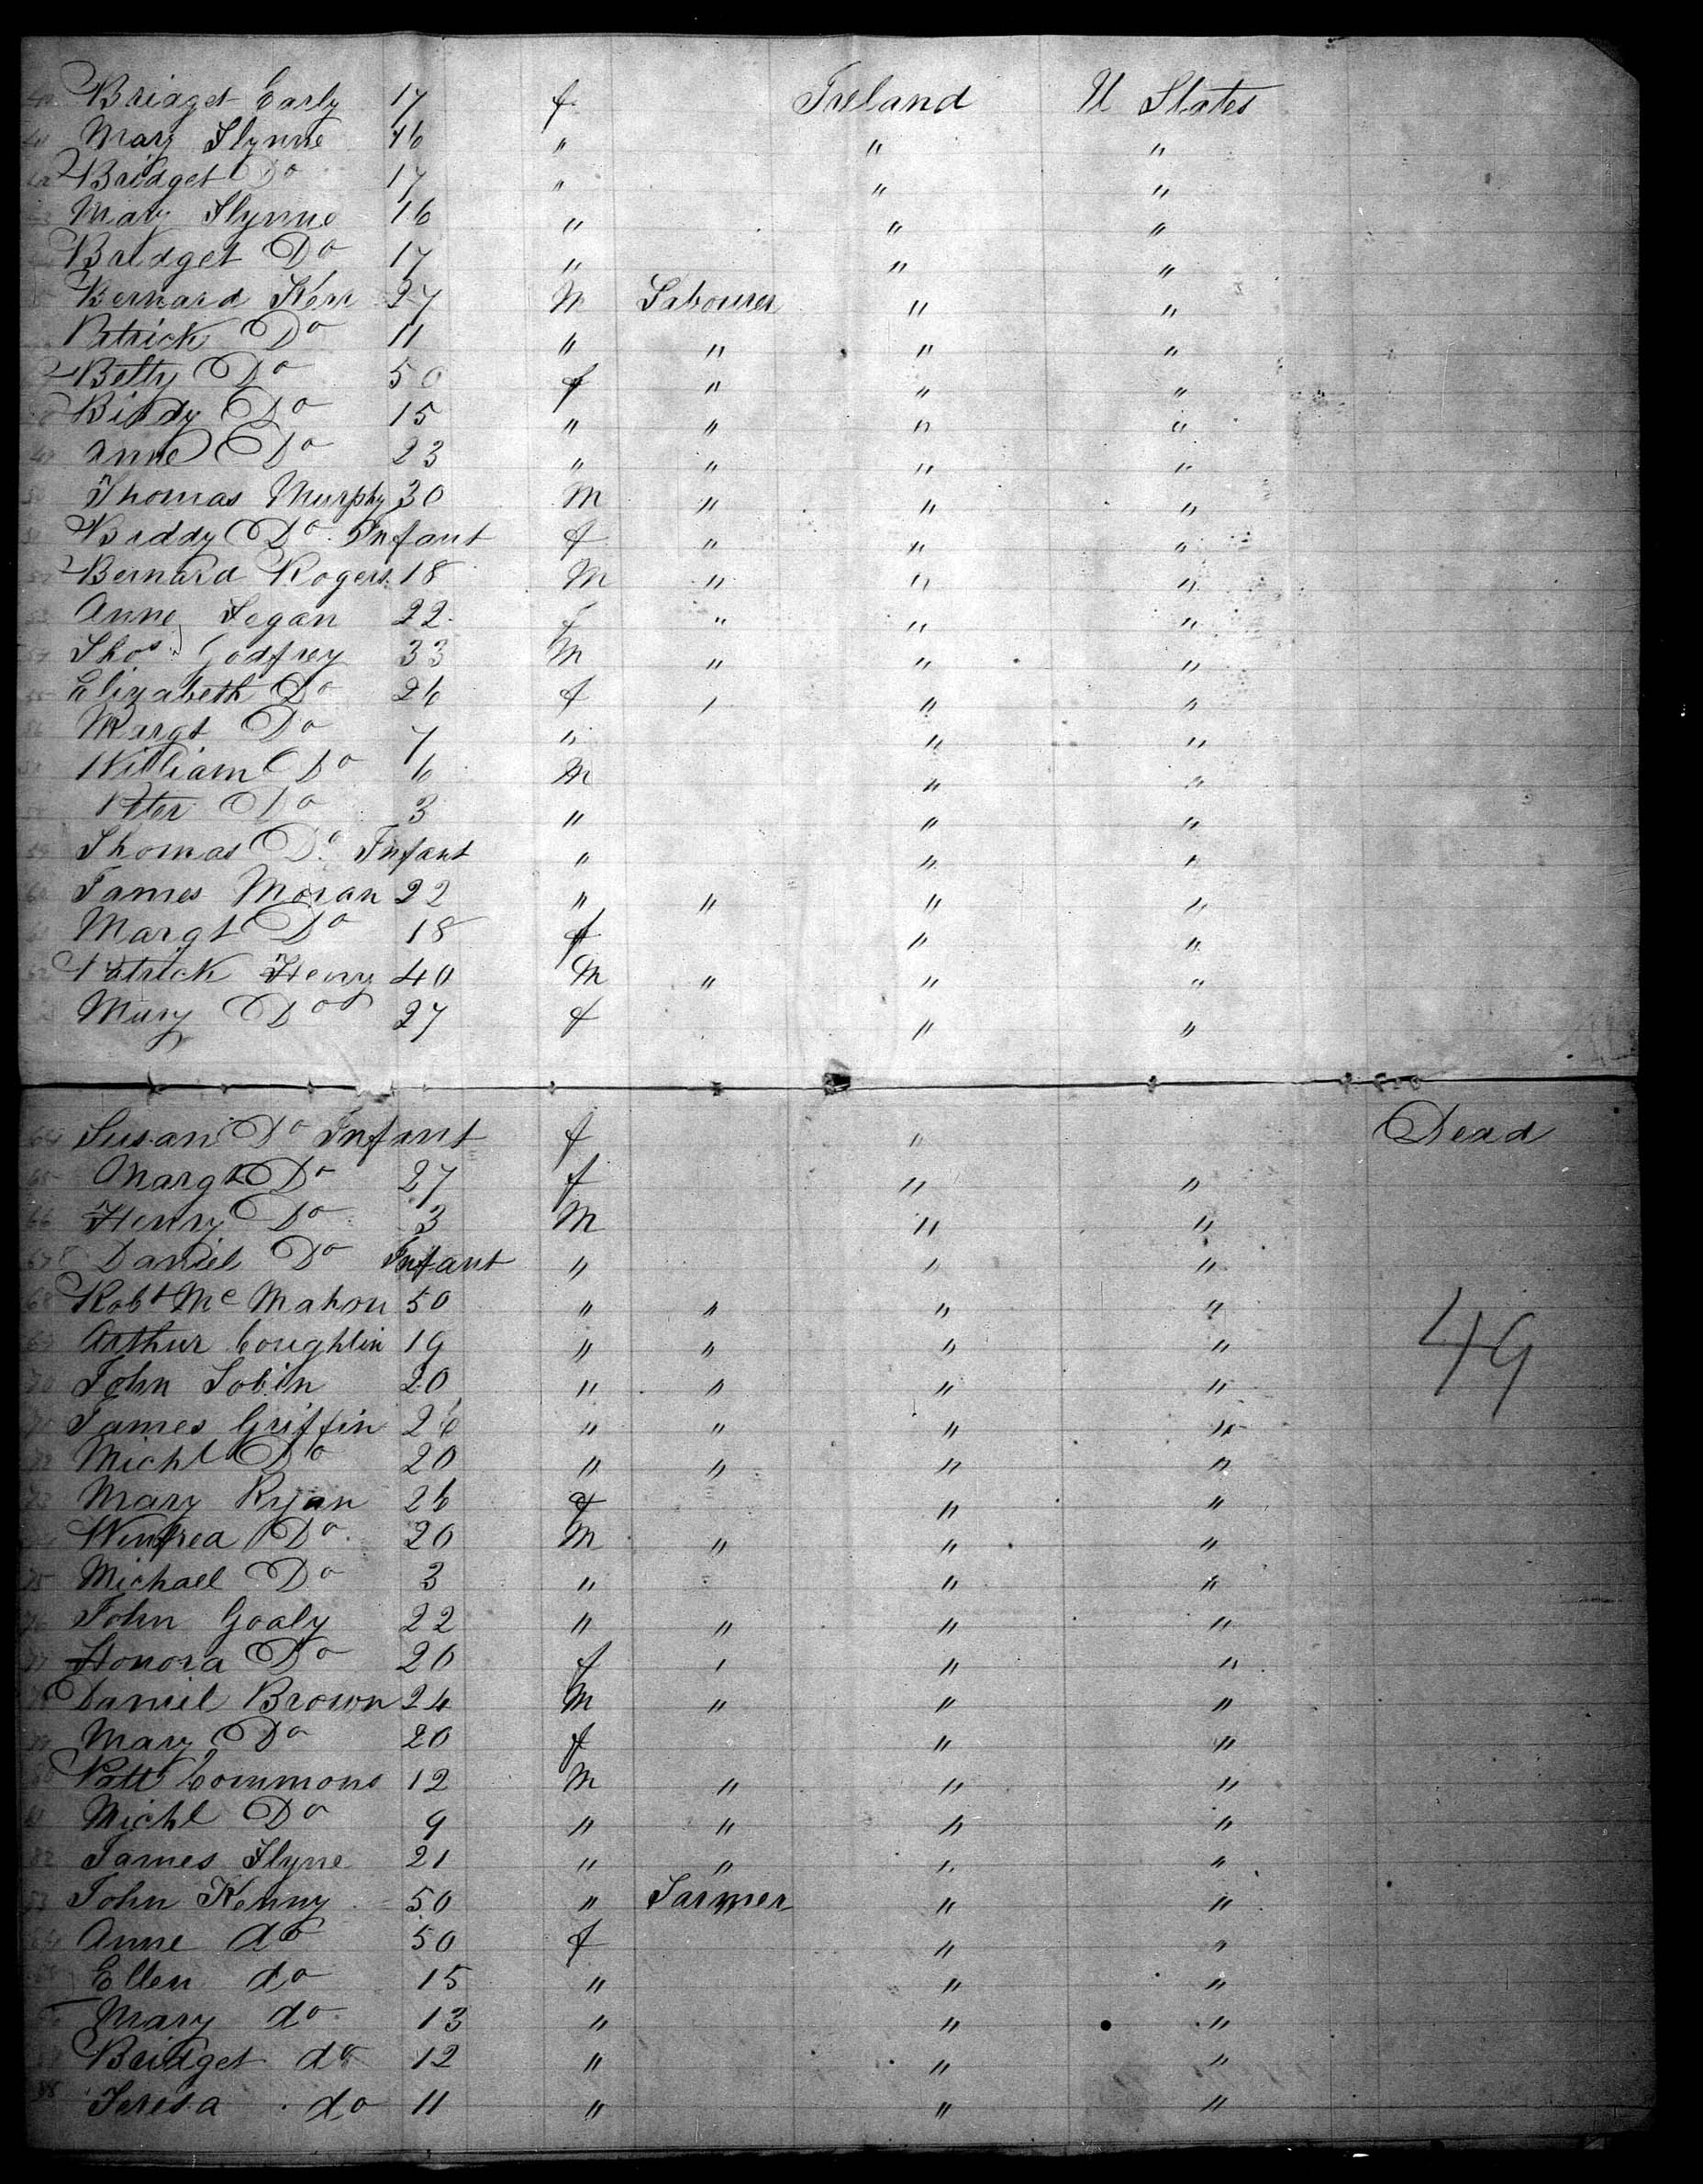 40 Bridget Early 17 f Ireland U States
41 Mary Flynne 16 " " "
42 Bridget Do 17 " " "
Mary Flynne 16 " " "
Bridget Do 17 " " "
Bernard Kerr 27 M Labourer " "
Patrick Do 11 " " " "
Betty Do 50 f " " "
Biddy Do 15 " " " "
49 Anne Do 23 " " " "
50 Thomas Murphy 30 M " " "
51 Biddy Do Infant f " " "
52 Bernard Rogers 18 M " " "
53 Anne Fegan 22 f " " "
54 Thos Godfrey 33 M " " "
55 Elizabeth Do 26 f " " "
56 Margt Do 7 " " "
William Do 6 M " "
Peter Do 3 " " "
59 Thomas Do Infant " " "
60 James Moran 22 " " " "
61 Margt Do 18 f " "
62 Patrick Henry 40 M " " "
Mary Do 27 f " "
64 Susan Do Infant f " Dead
65 Margt Do 27 f " "
66 Henry Do 3 M " "
67 Daniel Do Infant " " "
68 Robt Mc Mahon 50 " " " "
69 Arthur Coughlin 19 " " " "
49
70 John Tobin 20 " " " "
71 James Griffin 26 " " " "
72 Michl Do 20 " " " "
73 Mary Ryan 26 f " "
Winfred Do 20 M " " "
75 Michael Do 3 " " "
76 John Goaly 22 " " " "
77 Honora Do 20 f " " "
78 Daniel Brown 24 M " " "
79 Mary Do 20 f " "
80 Patt Commons 12 M " " "
81 Michl Do 9 " " " "
82 James Flyne 21 " " " "
83 John Kenny 50 " Farmer " "
84 Anne do 50 f " "
Ellen do 15 " " "
Mary do 13 " " "
Bridget do 12 " " "
88 Teresa do 11 " " "